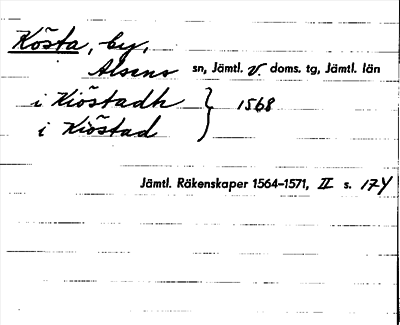 Kösta, by,
Alsens sn, Jämtl. v. doms. tg, Jämtl. län
i Kiöstadh } 1568
i Kiöstad
Jämtl. Räkenskaper 1564–1571, II s. 174